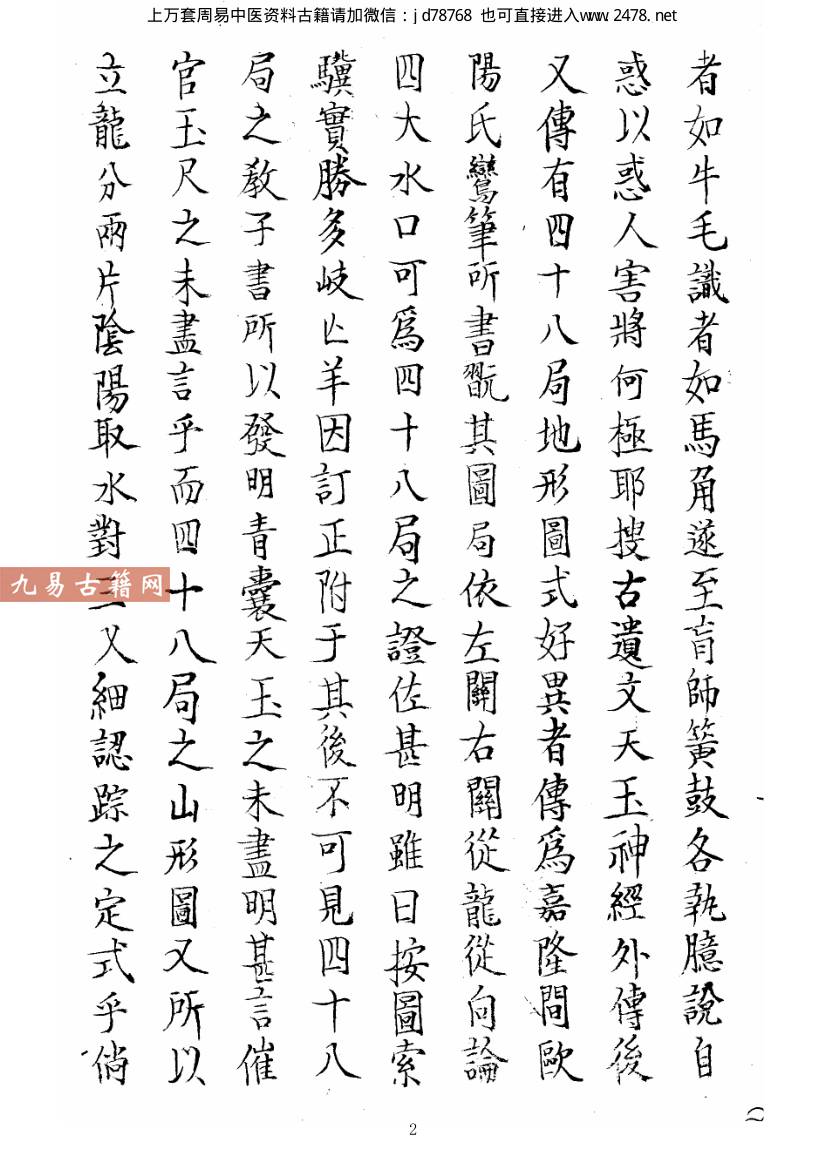 上万套周易中医资料古籍请加微信：jd78768 也可直接进入www.2478.net
者如牛毛識者如馬角遂至盲師簧鼓各執臆說自
惑以惑人害將何極耶搜古遺文天玉神經外傳後
又傳有四十八局地形圖式好異者傳爲嘉隆間歐
陽氏鸞筆所書翫其圖局依左關右關從龍從向論
四大水口可爲四十八局之證佐甚明雖曰按圖索
驥實勝多岐亾羊因訂正附于其後不可見四十八
局之教子書所以發明青囊天玉之未盡明甚言催
官玉尺之未盡言乎而四十八局之山形圖又所以
立龍分兩片陰陽取水對三叉細認踪之定式乎倘
九易古籍网
2